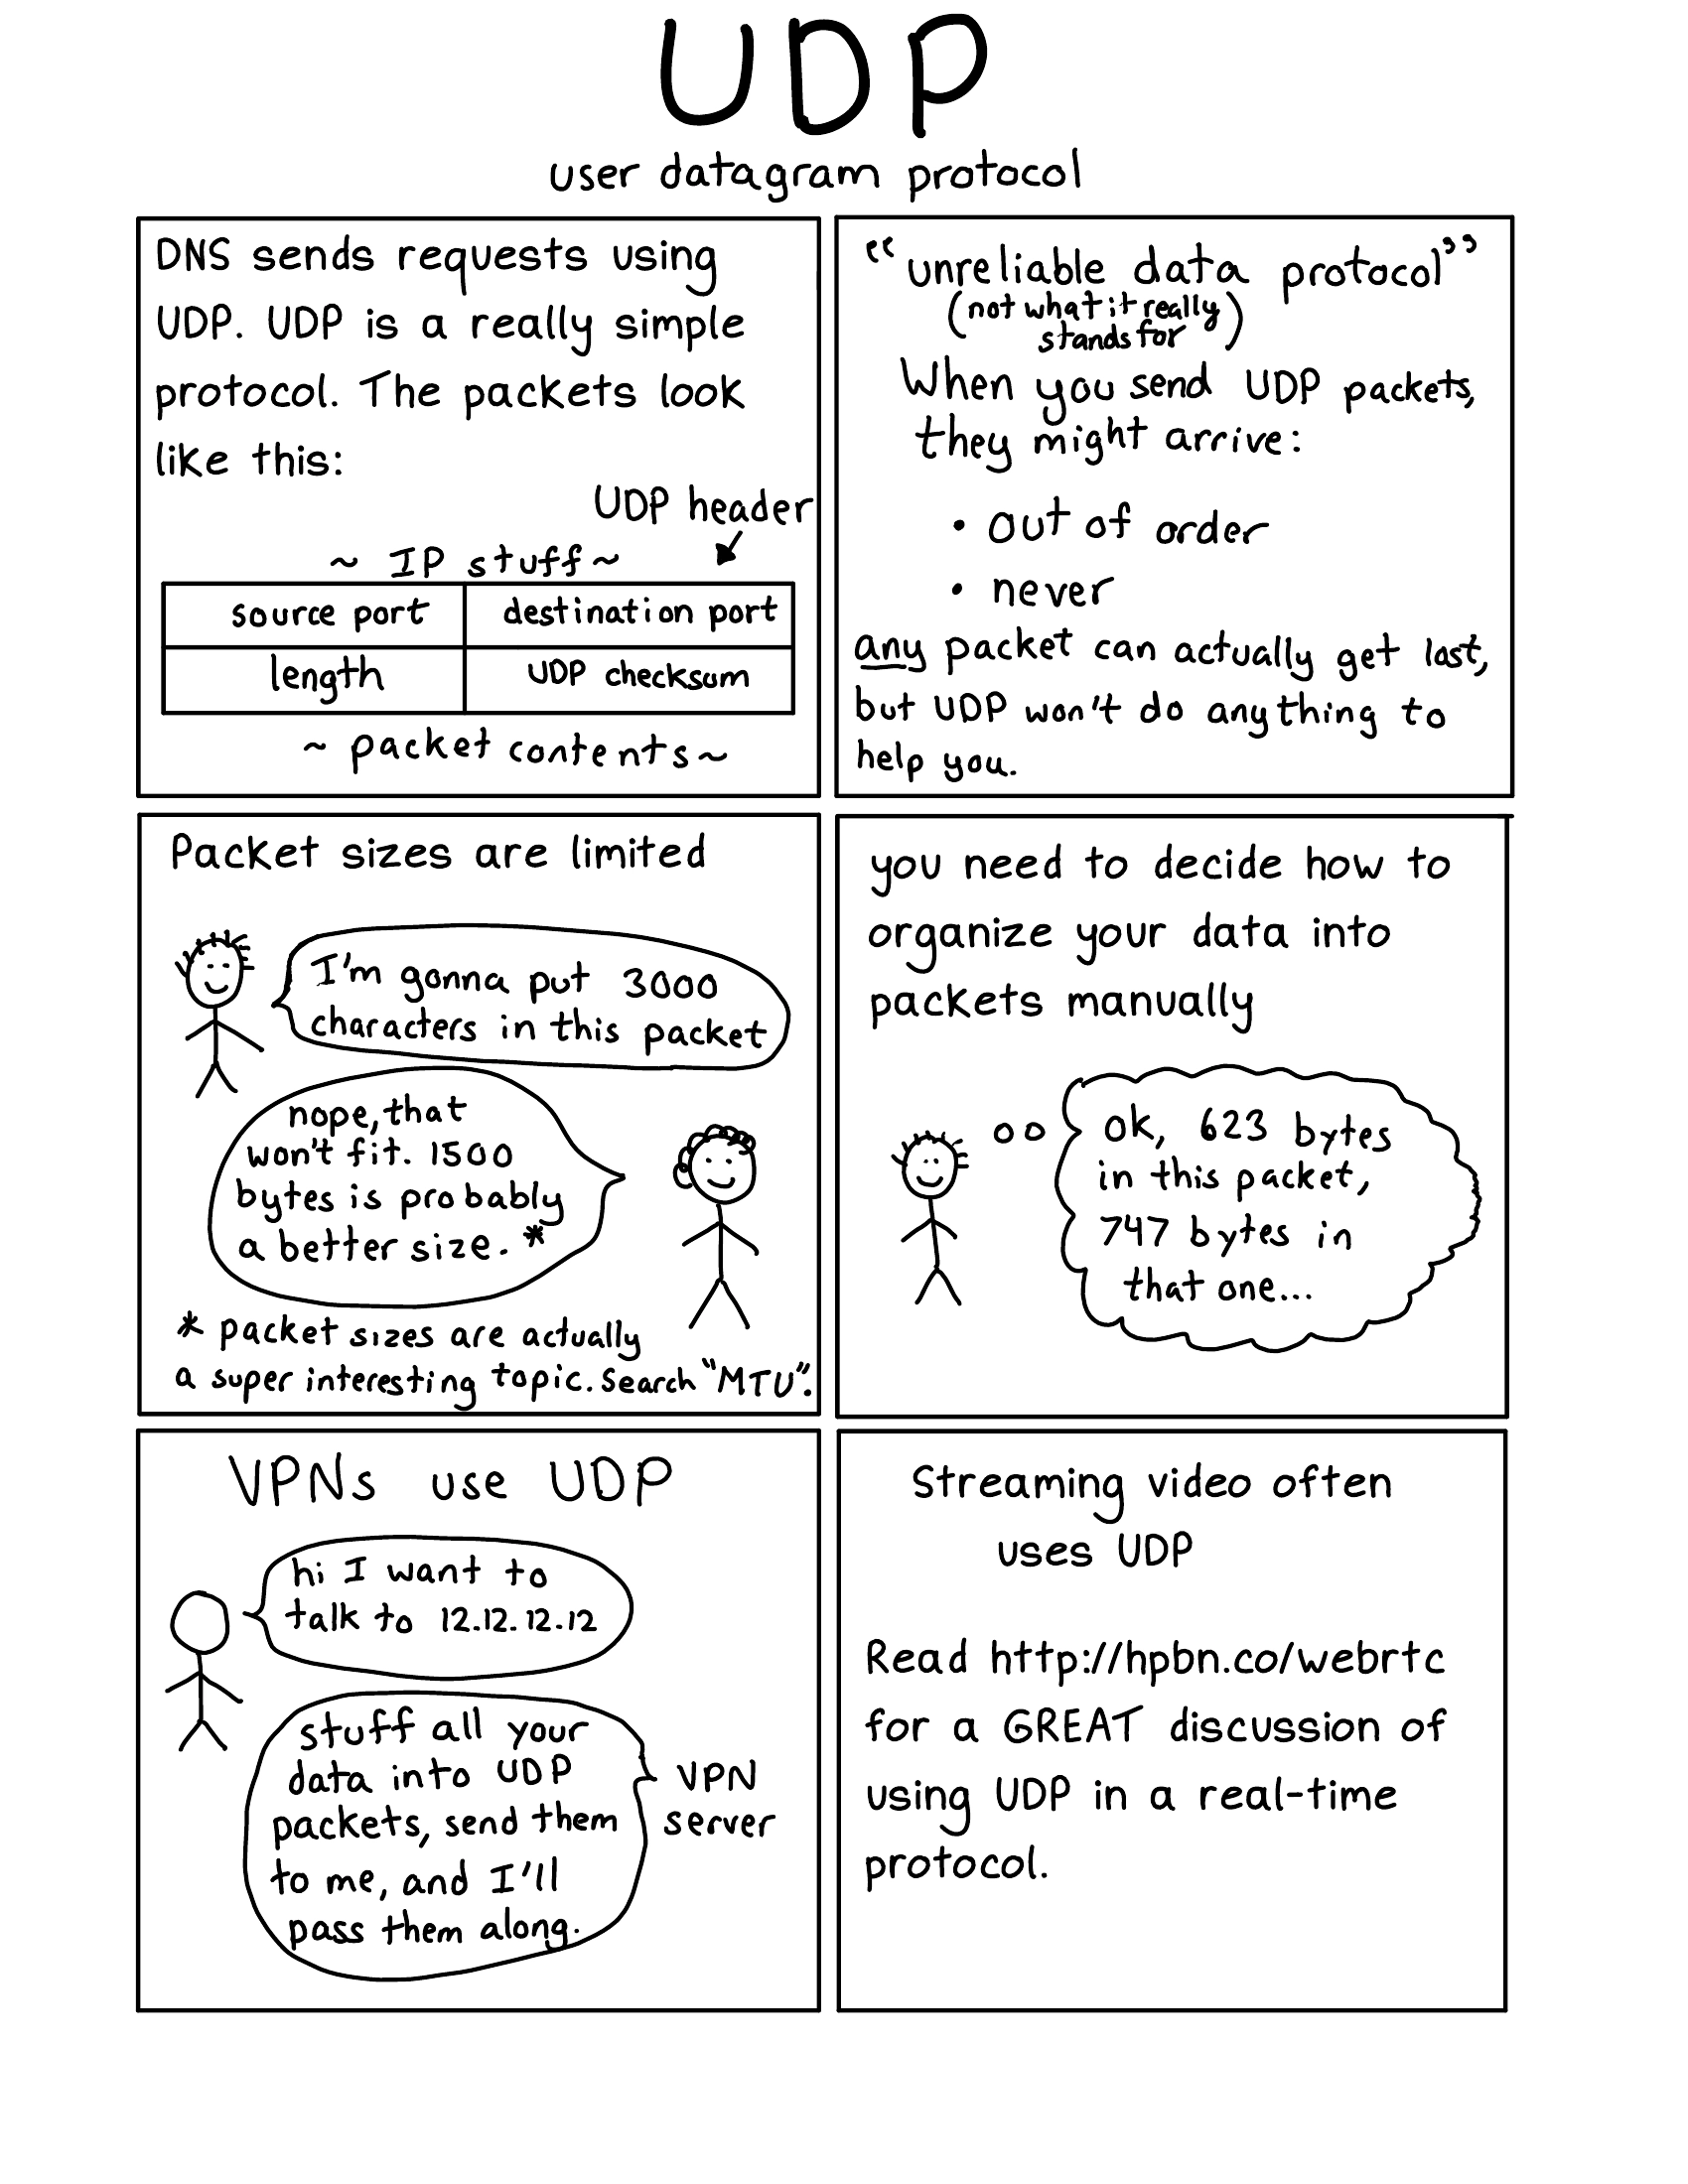 UDP
user datagram protocol
DNS sends requests using
UDP. UDP is a really simple
protocol. The packets look
like this:
UDP header
~ IP stuff ~
source port destination port
length UDP checksum
~ packet contents ~
"unreliable data protocol"
(not what it really
stands for)
When you send UDP packets,
they might arrive:
• out of order
• never
any packet can actually get lost,
but UDP won't do anything to
help you.
Packet sizes are limited
I'm gonna put 3000
characters in this packet
nope, that
won't fit. 1500
bytes is probably
a better size. *
* packet sizes are actually
a super interesting topic. Search "MTU".
you need to decide how to
organize your data into
packets manually
ok, 623 bytes
in this packet,
747 bytes in
that one...
VPNs use UDP
hi I want to
talk to 12.12.12.12
stuff all your
data into UDP
packets, send them
to me, and I'll
pass them along.
VPN
server
Streaming video often
uses UDP
Read http://hpbn.co/webrtc
for a GREAT discussion of
using UDP in a real-time
protocol.